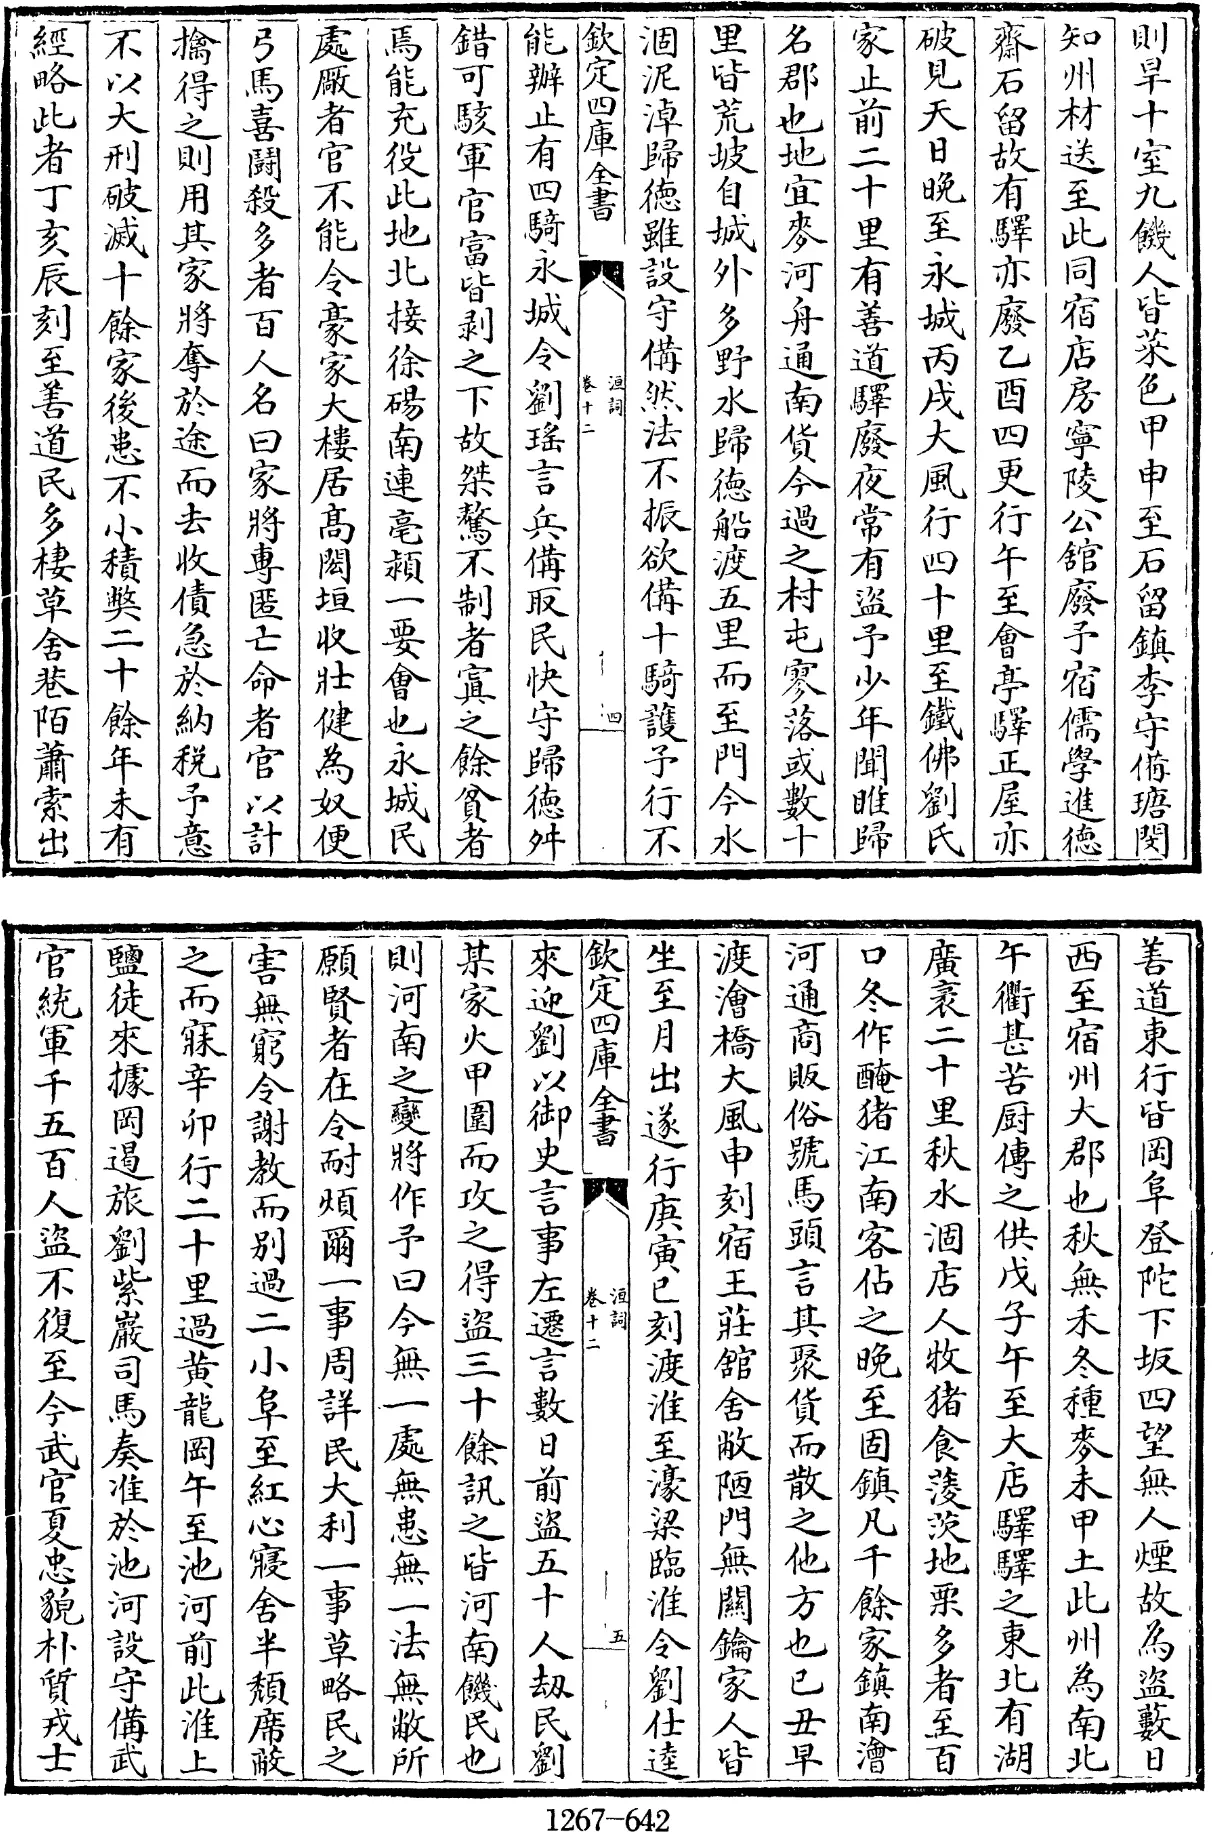 則旱十室九饑人皆菜色甲申至石留鎮李守備瑭閔
知州材送至此同宿店房寧陵公舘廢予宿儒學進德
齋石留故有驛亦廢乙酉四更行午至會亭驛正屋亦
破見天日晚至永城丙戌大風行四十里至鐵佛劉氏
家止前二十里有善道驛廢夜常有盜予少年聞睢歸
名郡也地宜麥河舟通南貨今過之村屯寥落或數十
里皆荒坡自城外多野水歸德船渡五里而至門今水
涸泥淖歸德雖設守備然法不振欲備十騎護予行不
欽定四庫全書
洹詞
卷十二
四
能辦止有四騎永城令劉瑤言兵備取民快守歸德舛
錯可駭軍官富皆剥之下故桀驁不制者寘之餘貧者
焉能充役此地北接徐碭南連亳潁一要會也永城民
處厰者官不能令豪家大樓居髙閎垣收壯健為奴便
弓馬喜鬪殺多者百人名曰家將專匿亡命者官以計
擒得之則用其家將奪於途而去收債急於納税予意
不以大刑破滅十餘家後患不小積弊二十餘年未有
經略此者丁亥辰刻至善道民多棲草舍巷陌蕭索出
善道東行皆岡阜登陀下坂四望無人煙故為盜藪日
西至宿州大郡也秋無禾冬種麥未甲土此州為南北
午衢甚苦厨傳之供戊子午至大店驛驛之東北有湖
廣袤二十里秋水涸店人牧猪食菱茨地栗多者至百
口冬作醃猪江南客估之晚至固鎮凡千餘家鎮南澮
河通商販俗號馬頭言其聚貨而散之他方也已丑早
渡澮橋大風申刻宿王莊舘舍敝陋門無關鑰家人皆
坐至月出遂行庚寅巳刻渡淮至濠梁臨淮令劉仕逵
欽定四庫全書
洹詞
卷十二
五
來迎劉以御史言事左遷言數日前盜五十人刼民劉
某家火甲圍而攻之得盜三十餘訊之皆河南饑民也
則河南之變將作予曰今無一處無患無一法無敝所
願賢者在令耐煩爾一事周詳民大利一事草略民之
害無窮令謝教而别過二小阜至紅心寢舍半頽席敝
之而寐辛卯行二十里過黄龍岡午至池河前此淮上
鹽徒來據岡遏旅劉紫巖司馬奏准於池河設守備武
官統軍千五百人盜不復至今武官夏忠貌朴質戎士
1267-642